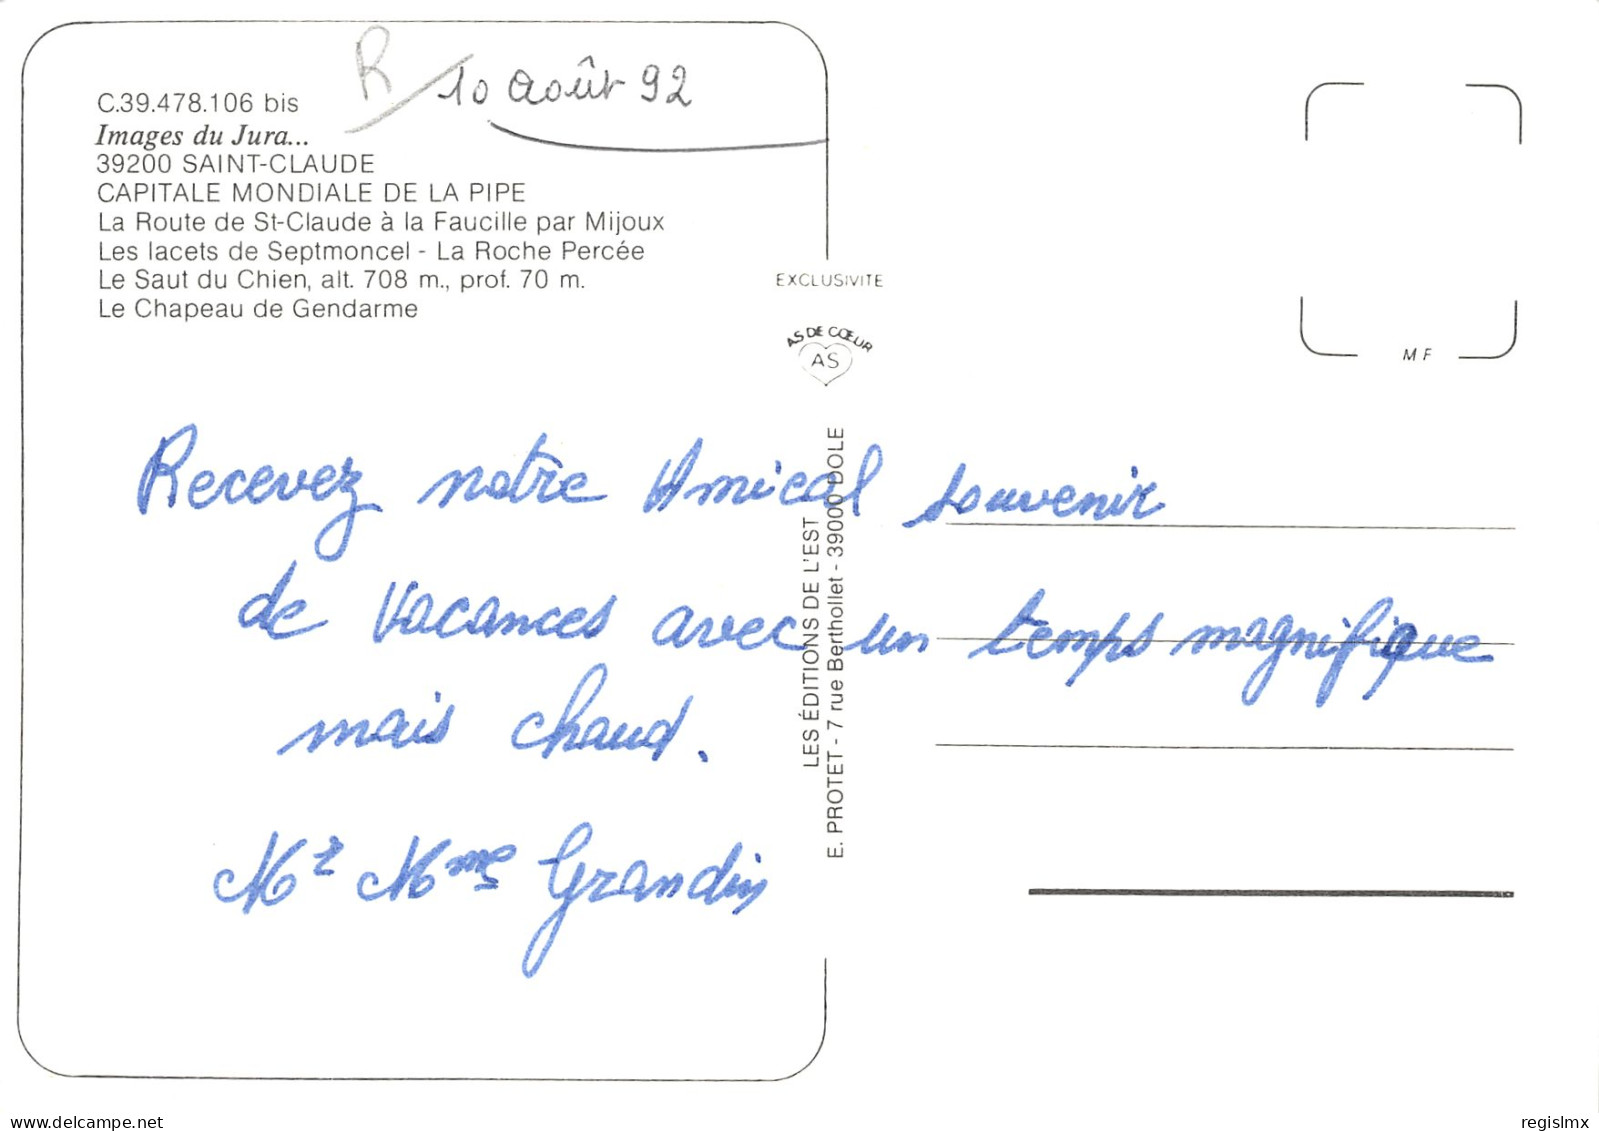 R / 10 août 92
C.39.478.106 bis
Images du Jura...
39200 SAINT-CLAUDE
CAPITALE MONDIALE DE LA PIPE
La Route de St-Claude à la Faucille par Mijoux
Les lacets de Septmoncel - La Roche Percée
Le Saut du Chien, alt. 708 m., prof. 70 m.
Le Chapeau de Gendarme
EXCLUSIVITE
AS DE CŒUR
AS
MF
LES ÉDITIONS DE L'EST
E. PROTET - 7 rue Berthollet - 39000 DOLE
Recevez notre Amical souvenir
de vacances avec un temps magnifique
mais chaud.
Mr Mme Grandin
delcampe.net
regislmx